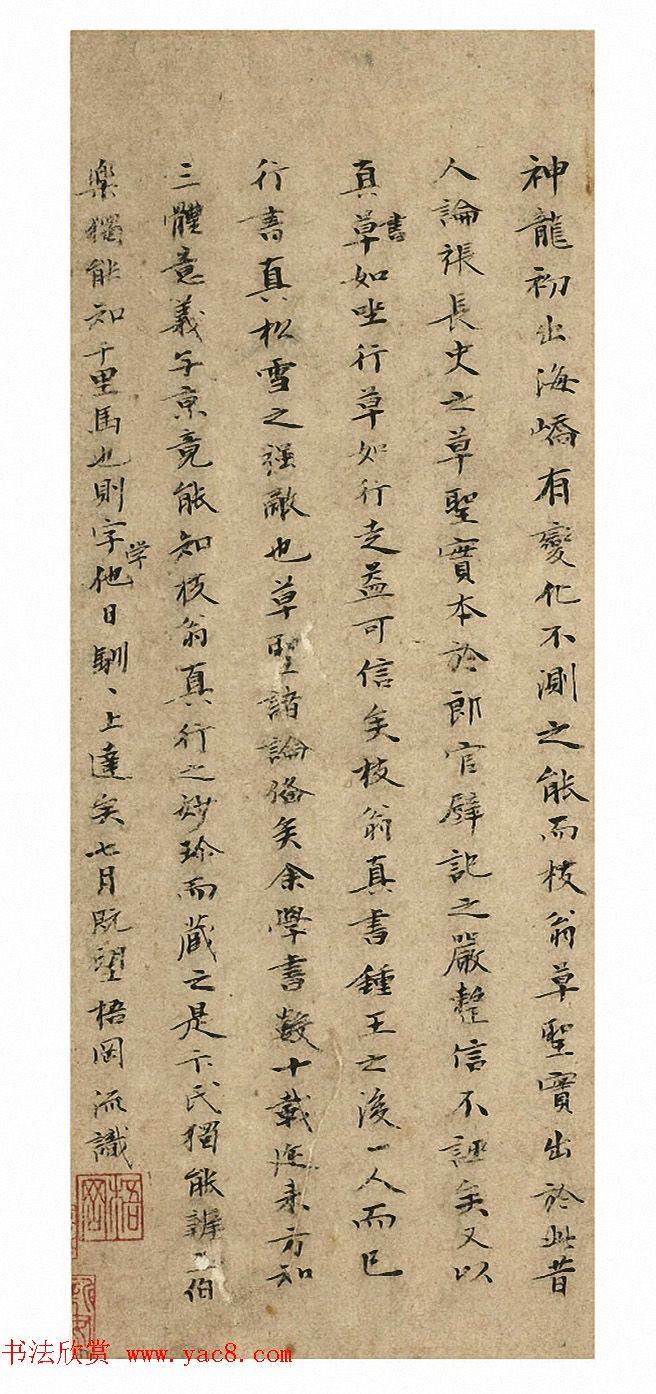 神龍初出海嶠有變化不測之能而枝翁草聖實出於此昔
人論張長史之草聖實本於郎官壁記之嚴整信不誣矣又以
真書草如坐行草如行走益可信矣枝翁真書鍾王之後一人而已
行書真松雪之強敵也草聖諸論備矣余學書數十載近來方知
三體意義子京竟能知枝翁真行之妙珍而藏之是卞氏獨能辨玉伯
樂獨能知千里馬也則字学他日駸、上達矣七月既望梧岡識
梧岡
书法欣赏 www.yac8.com